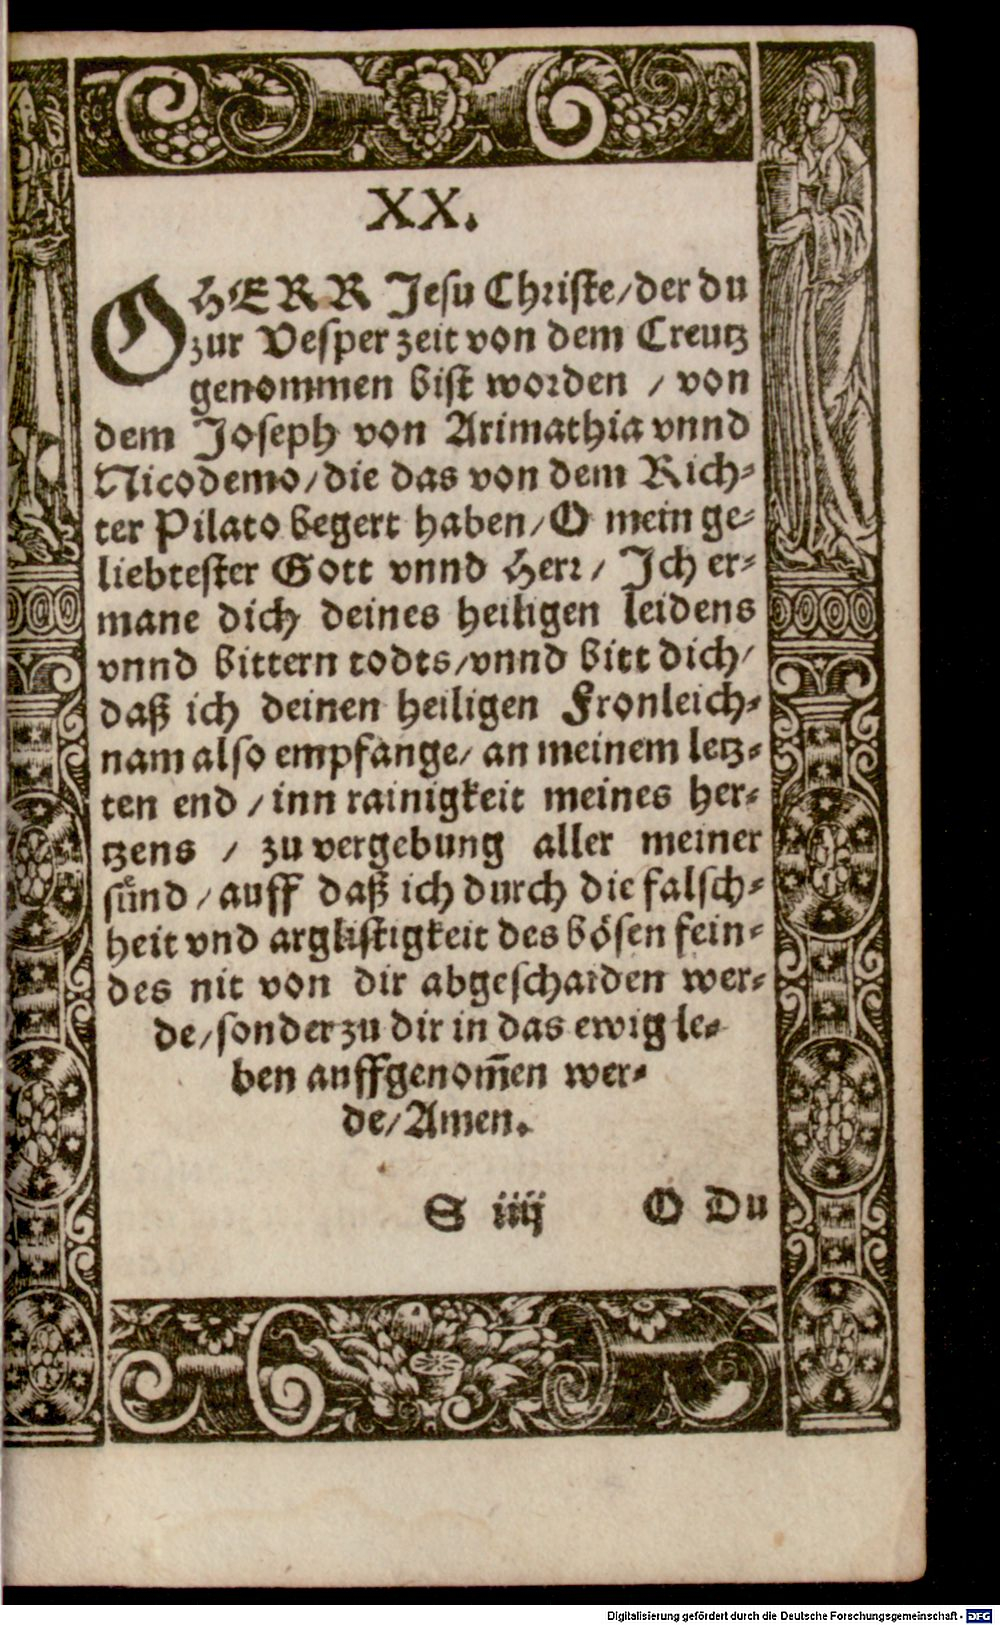 XX.
O HERR Jesu Christe/ der du
zur Vesper zeit von dem Creutz
genommen bist worden / von
dem Joseph von Arimathia vnnd
Nicodemo/ die das von dem Rich-
ter Pilato begert haben/ O mein ge-
liebtester Gott vnnd Herr/ Ich er-
mane dich deines heiligen leidens
vnnd bittern todts/ vnnd bitt dich/
daß ich deinen heiligen Fronleich-
nam also empfange/ an meinem letz-
ten end / inn rainigkeit meines her-
tzens / zu vergebung aller meiner
sünd / auff daß ich durch die falsch-
heit vnd arglistigkeit des bösen fein-
des nit von dir abgeschaiden wer-
de/ sonder zu dir in das ewig le-
ben auffgenom̃en wer-
de/ Amen.
S iiij O Du
Digitalisierung gefördert durch die Deutsche Forschungsgemeinschaft - DFG